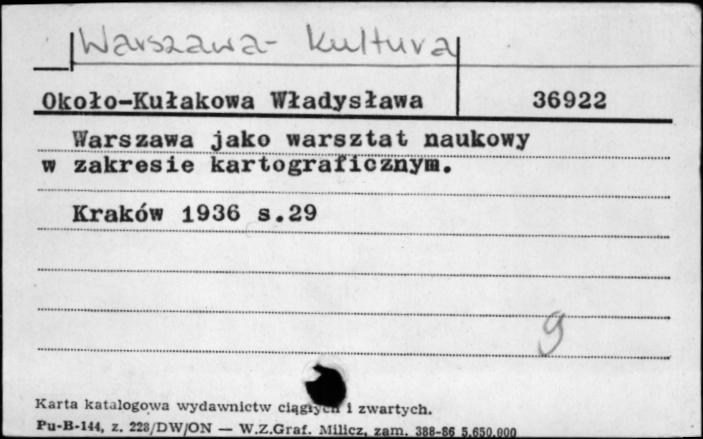 Warszawa - Kultura
Około-Kułakowa Władysława 36922
Warszawa jako warsztat naukowy
w zakresie kartograficznym.
Kraków 1936 s.29
9
Karta katalogowa wydawnictw ciągłych i zwartych.
Pu-B-144, z. 228/DW/ON — W.Z.Graf. Milicz, zam. 388-86 5.650.000